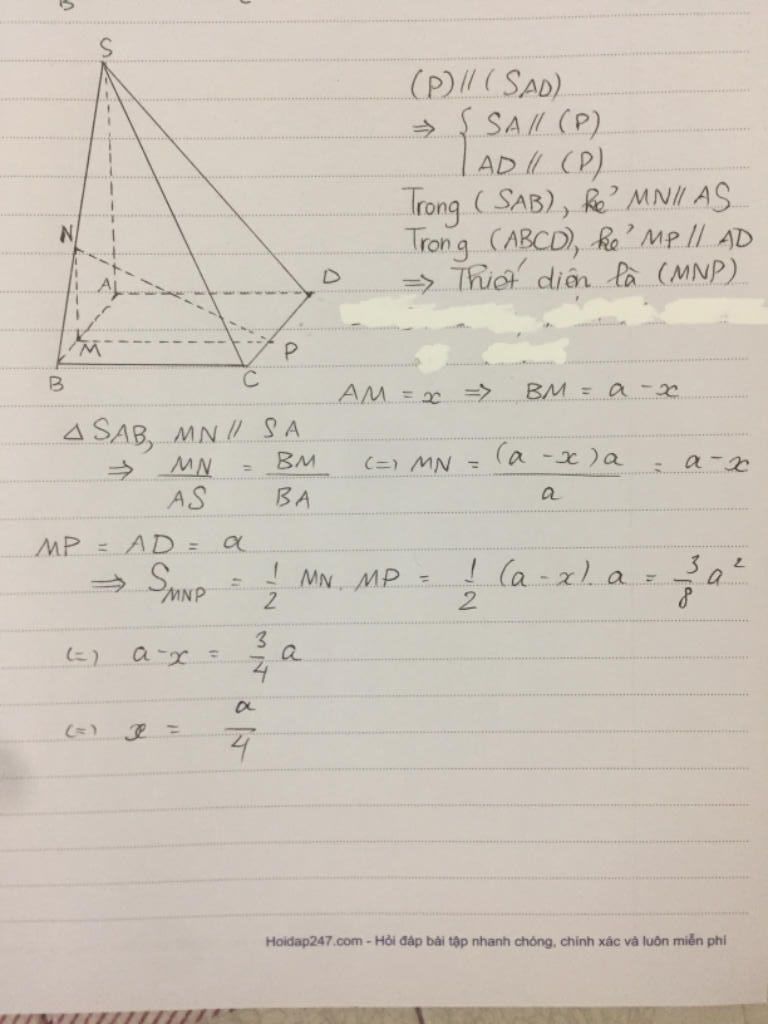 S
N
A
D
M
P
B
C
(P) // (SAD)
⇒ { SA // (P)
AD // (P)
Trong (SAB), kẻ MN // AS
Trong (ABCD), kẻ MP // AD
⇒ Thiết diện là (MNP)
AM = x ⇒ BM = a - x
Δ SAB, MN // SA
⇒ MN/AS = BM/BA (=) MN = (a - x)a/a = a - x
MP = AD = a
⇒ S_MNP = 1/2 MN. MP = 1/2 (a - x). a = 3/8 a²
(=) a - x = 3/4 a
(=) x = a/4
Hoidap247.com - Hỏi đáp bài tập nhanh chóng, chính xác và luôn miễn phí